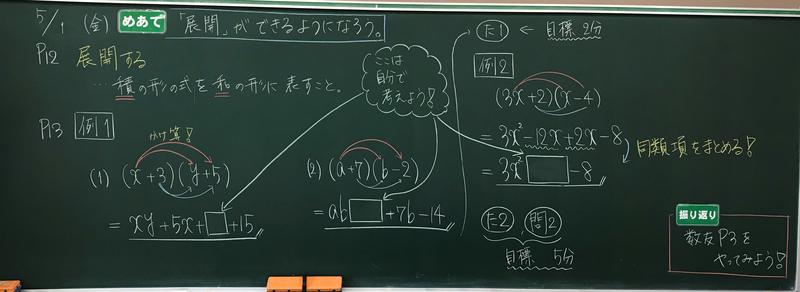 5/1 (金) めあて 「展開」ができるようになろう。
P12 展開する
…積の形の式を和の形に表すこと。
P13 例1
かけ算!
(1) (x+3)(y+5)
= xy+5x+□+15
ここは
自分で
考えよう!
(2) (a+7)(b-2)
= ab□+7b-14
た1 ← 目標 2分
例2
(3x+2)(x-4)
= 3x²-12x+2x-8
同類項をまとめる!
= 3x²□-8
た2, 問2
目標 5分
振り返り
数友P3を
やってみよう!